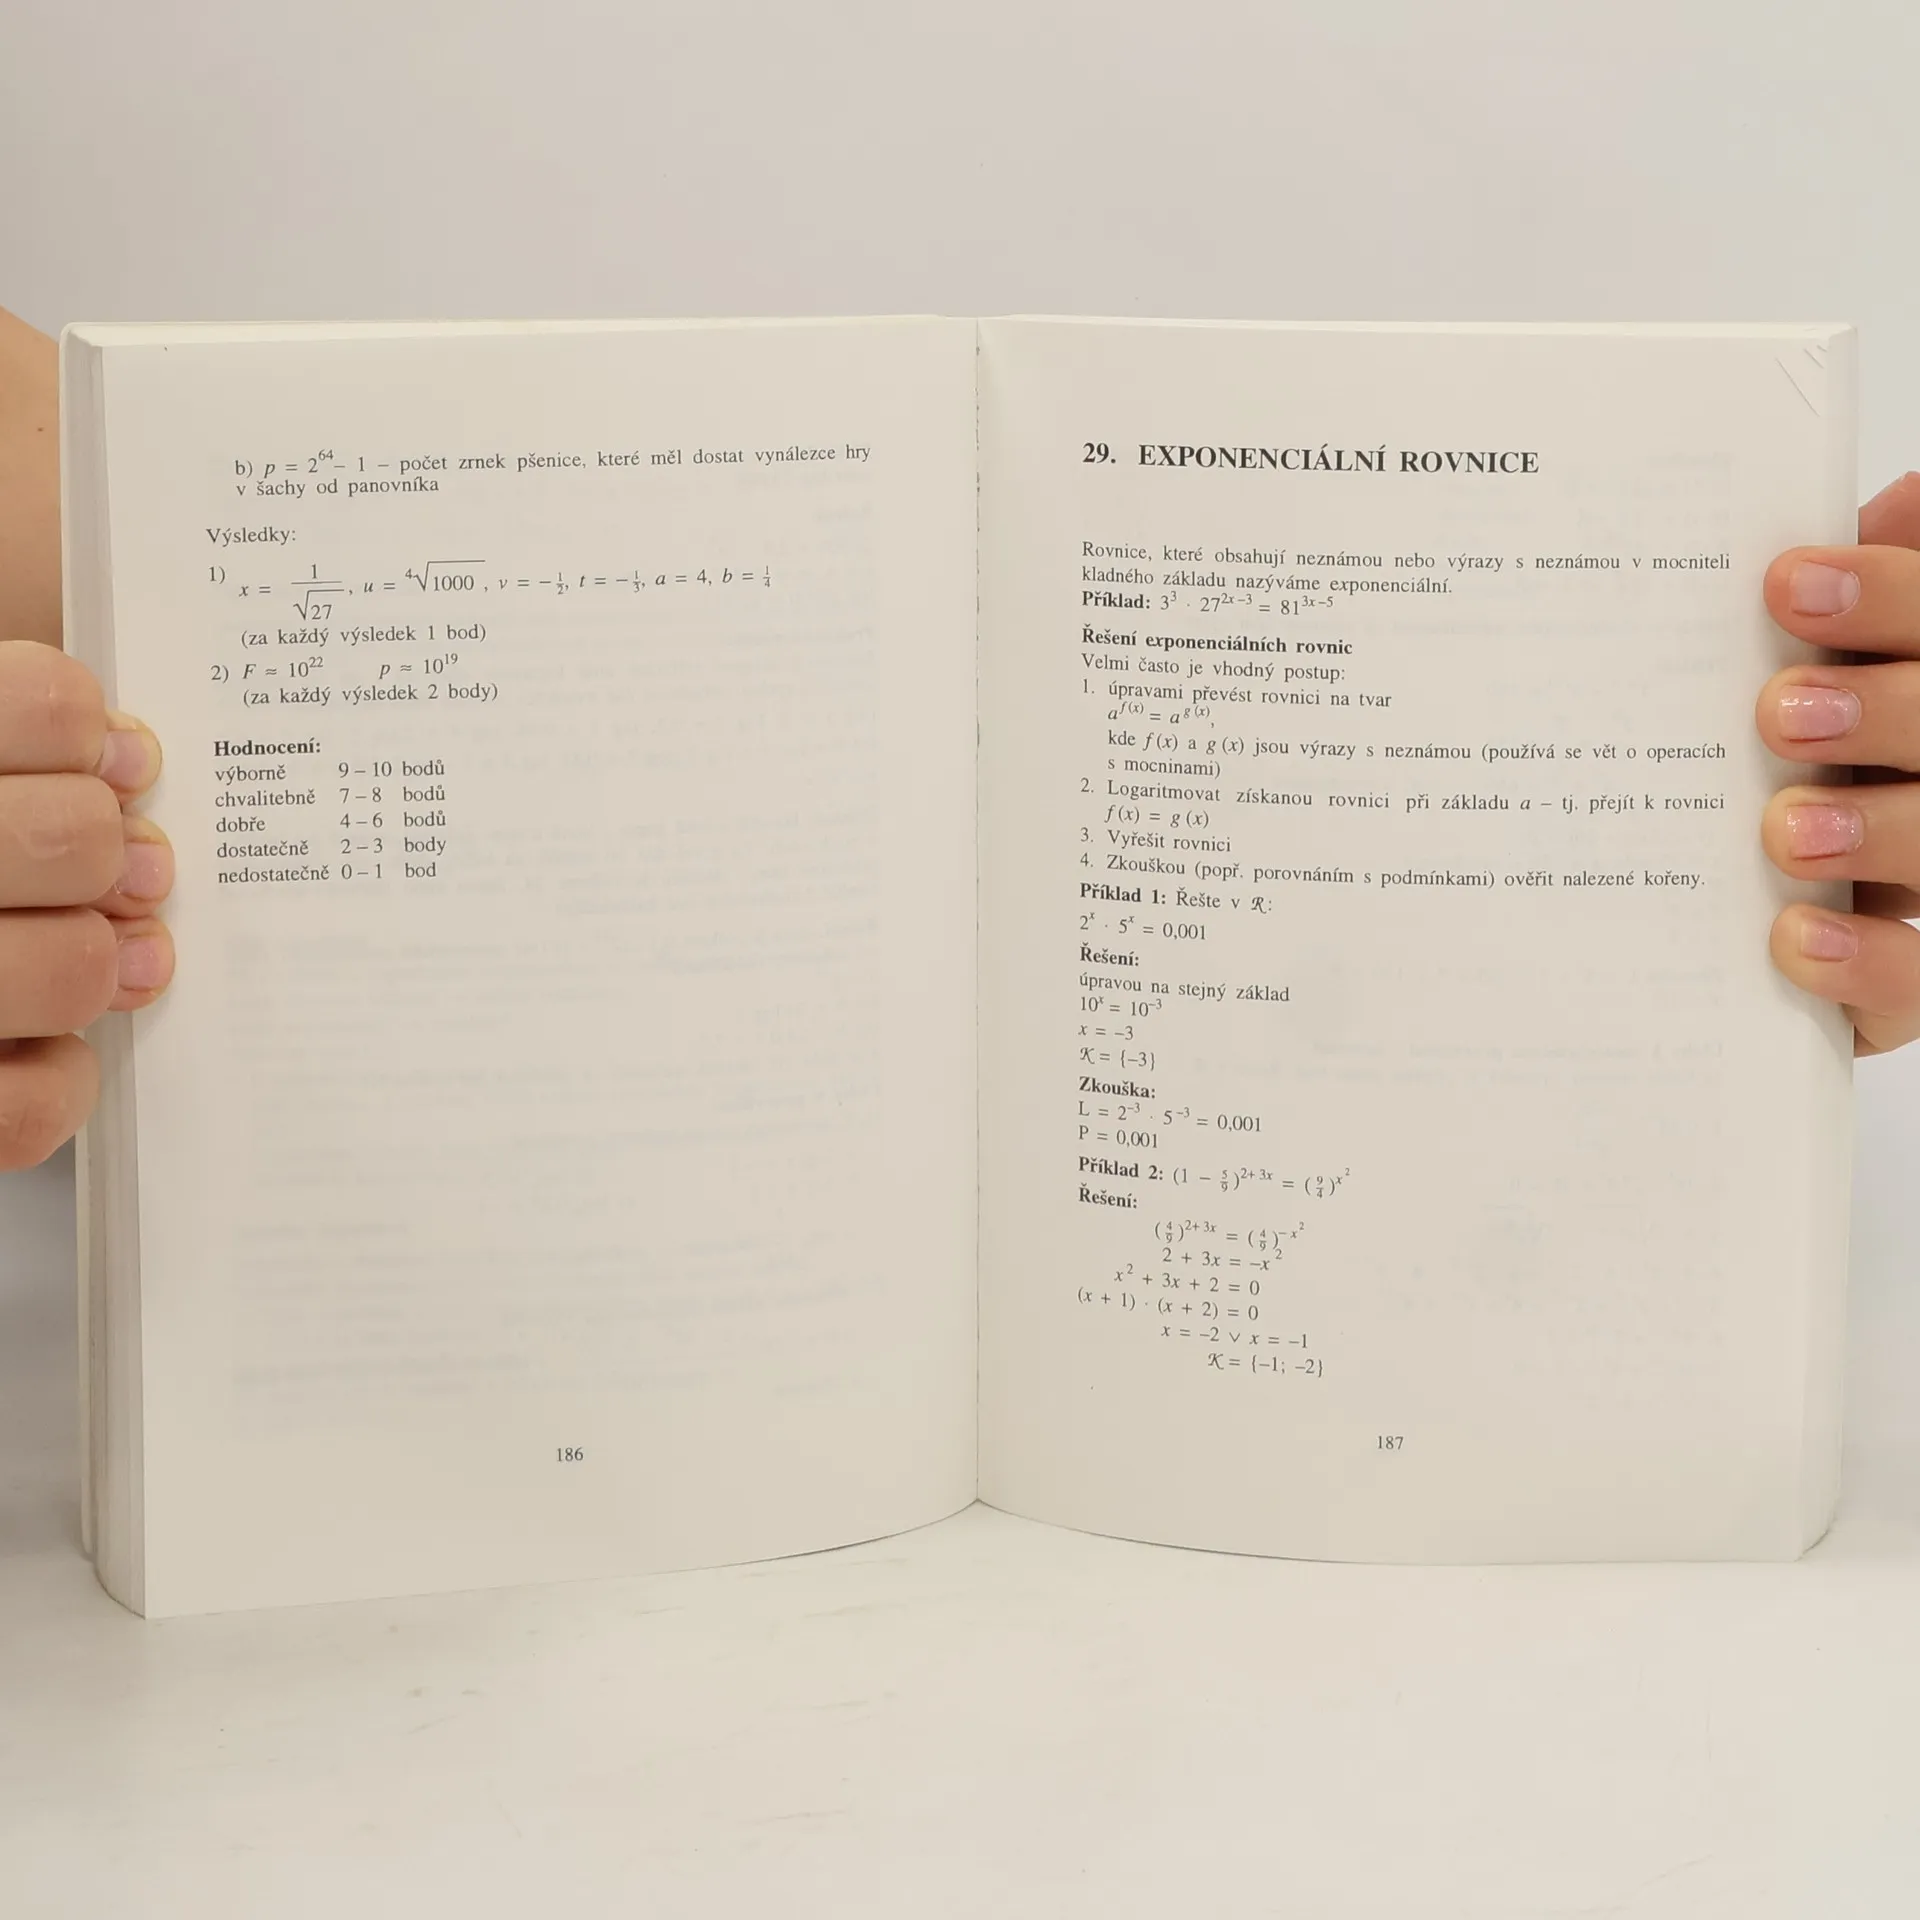 b) p = 2⁶⁴ – 1 – počet zrnek pšenice, které měl dostat vynálezce hry
v šachy od panovníka
Výsledky:
1) x = 1/√27, u = ⁴√1000, v = –1/2, t = –1/3, a = 4, b = 1/4
(za každý výsledek 1 bod)
2) F ≈ 10²² p ≈ 10¹⁹
(za každý výsledek 2 body)
Hodnocení:
výborně 9 – 10 bodů
chvalitebně 7 – 8 bodů
dobře 4 – 6 bodů
dostatečně 2 – 3 body
nedostatečně 0 – 1 bod
186
29. EXPONENCIÁLNÍ ROVNICE
Rovnice, které obsahují neznámou nebo výrazy s neznámou v mocniteli
kladného základu nazýváme exponenciální.
Příklad: 3³ · 27^(2x–3) = 81^(3x–5)
Řešení exponenciálních rovnic
Velmi často je vhodný postup:
1. úpravami převést rovnici na tvar
a^f(x) = a^g(x),
kde f(x) a g(x) jsou výrazy s neznámou (používá se vět o operacích
s mocninami)
2. Logaritmovat získanou rovnici při základu a – tj. přejít k rovnici
f(x) = g(x)
3. Vyřešit rovnici
4. Zkouškou (popř. porovnáním s podmínkami) ověřit nalezené kořeny.
Příklad 1: Řešte v ℛ:
2ˣ · 5ˣ = 0,001
Řešení:
úpravou na stejný základ
10ˣ = 10⁻³
x = –3
𝒦 = {–3}
Zkouška:
L = 2⁻³ · 5⁻³ = 0,001
P = 0,001
Příklad 2: (1 – 5/9)^(2+3x) = (9/4)^(x²)
Řešení:
(4/9)^(2+3x) = (4/9)^(–x²)
2 + 3x = –x²
x² + 3x + 2 = 0
(x + 1) · (x + 2) = 0
x = –2 ∨ x = –1
𝒦 = {–1; –2}
187